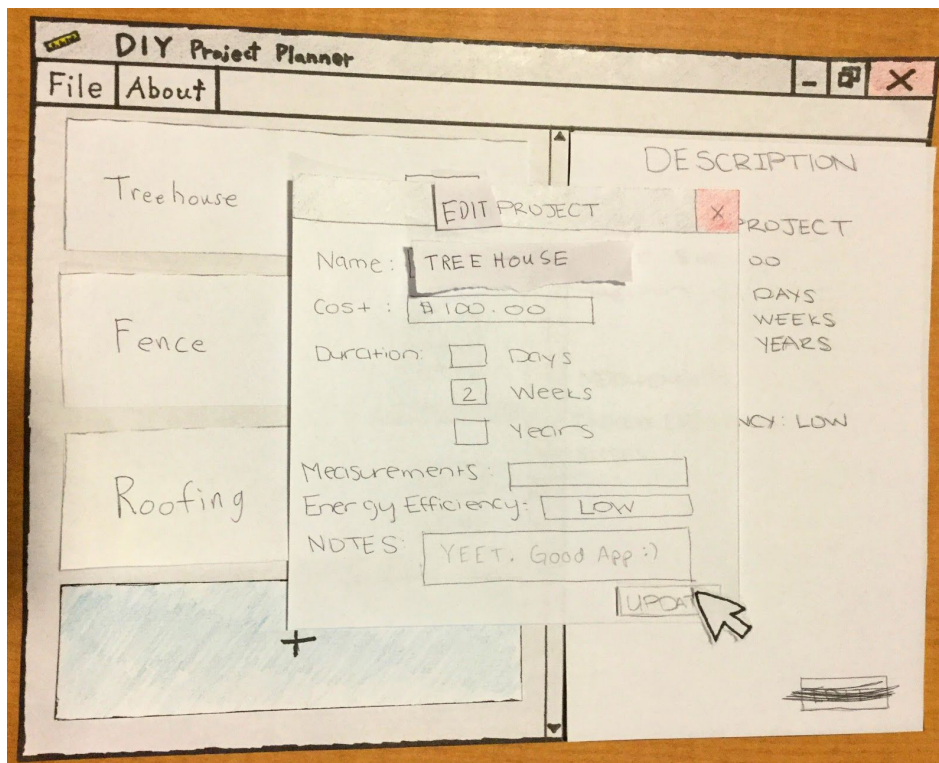 DIY Project Planner
File About
Treehouse
Fence
Roofing
+
DESCRIPTION
PROJECT
00
DAYS
WEEKS
YEARS
NCY: LOW
EDIT PROJECT X
Name: TREE HOUSE
Cost: $100.00
Duration: Days
2 Weeks
Years
Measurements:
Energy Efficiency: LOW
NOTES: YEET. Good App :)
UPDAT